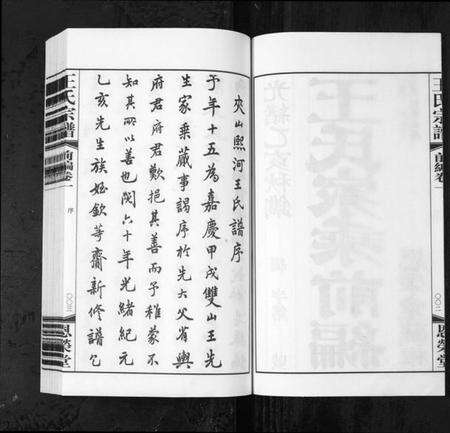 夾山熙河王氏譜序
予年十五為嘉慶甲戌雙山王先
生家乘蕆事謁序於先大父省輿
府君府君歎挹其善而予稚蒙不
知其所以善也閱六十年光緒紀元
乙亥先生族姪欽等齋新修譜乞
王氏宗譜
前編卷一
序
恩榮堂
王氏宗譜
前編卷一
恩榮堂
光緒乙亥秋鐫
王氏家乘前編